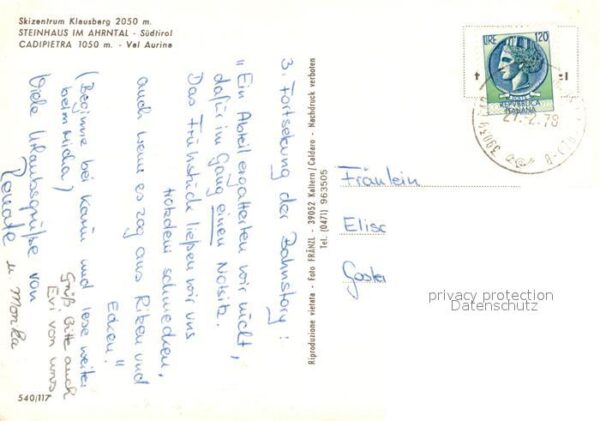 Skizentrum Klausberg 2050 m.
STEINHAUS IM AHRNTAL - Südtirol
CADIPIETRA 1050 m. - Val Aurina
3. Fortsetzung der Bahnstory:
"Ein Abteil ergatterten wir nicht,
dafür im Gang einen Notsitz.
Das Frühstück ließen wir uns
trotzdem schmecken,
auch wenn es zog aus Ritzen und
Ecken!"
(Beginne bei Karin und lese weiter
beim Micha)
Grüß bitte auch
Evi von uns
Viele Urlaubsgrüße von
Renate u. Monika
540/117
Riproduzione vietata - Foto FRÄNZL - 39052 Kaltern/Caldaro - Nachdruck verboten
Tel. (0471) 963505
LIRE 120
REPUBBLICA
ITALIANA
27.2.78
Fräulein
Elise
Goster
privacy protection
Datenschutz